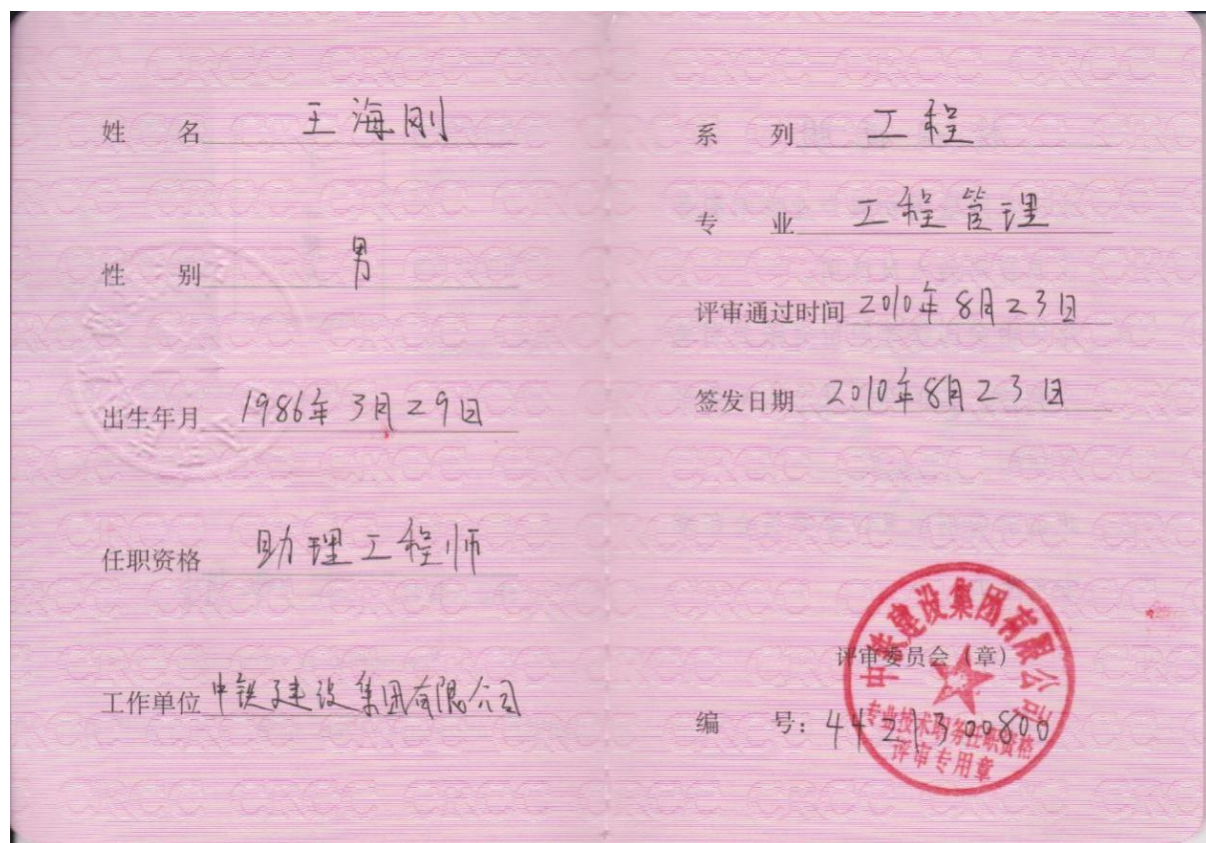 姓 名 王海刚
性 别 男
出生年月 1986年3月29日
任职资格 助理工程师
工作单位 中铁建设集团有限公司
系 列 工程
专 业 工程管理
评审通过时间 2010年8月23日
签发日期 2010年8月23日
评审委员会（章）
编 号：4421300800
中铁建设集团有限公司
专业技术职务任职资格
评审专用章
CRCC